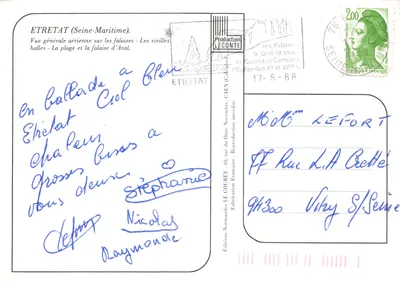 ETRETAT (Seine-Maritime).
Vue générale aérienne sur les falaises - Les vieilles
halles - La plage et la falaise d'Aval.
en ballade a
Etretat Ciel bleu
chaleur
Grosses bises a
vous deux
Stéphanie
Nicolas
Raymonde
Production
LECONTE
ETRETAT
ses Falaises
le Golf 18 Trous
17-8-88
2,00
Editions Normandes LE GOUBEY - 10, rue du Onze Novembre, CAEN
Fabrication Française - Reproduction interdite
LEFORT
77 Rue
94300 Vitry S/Seine